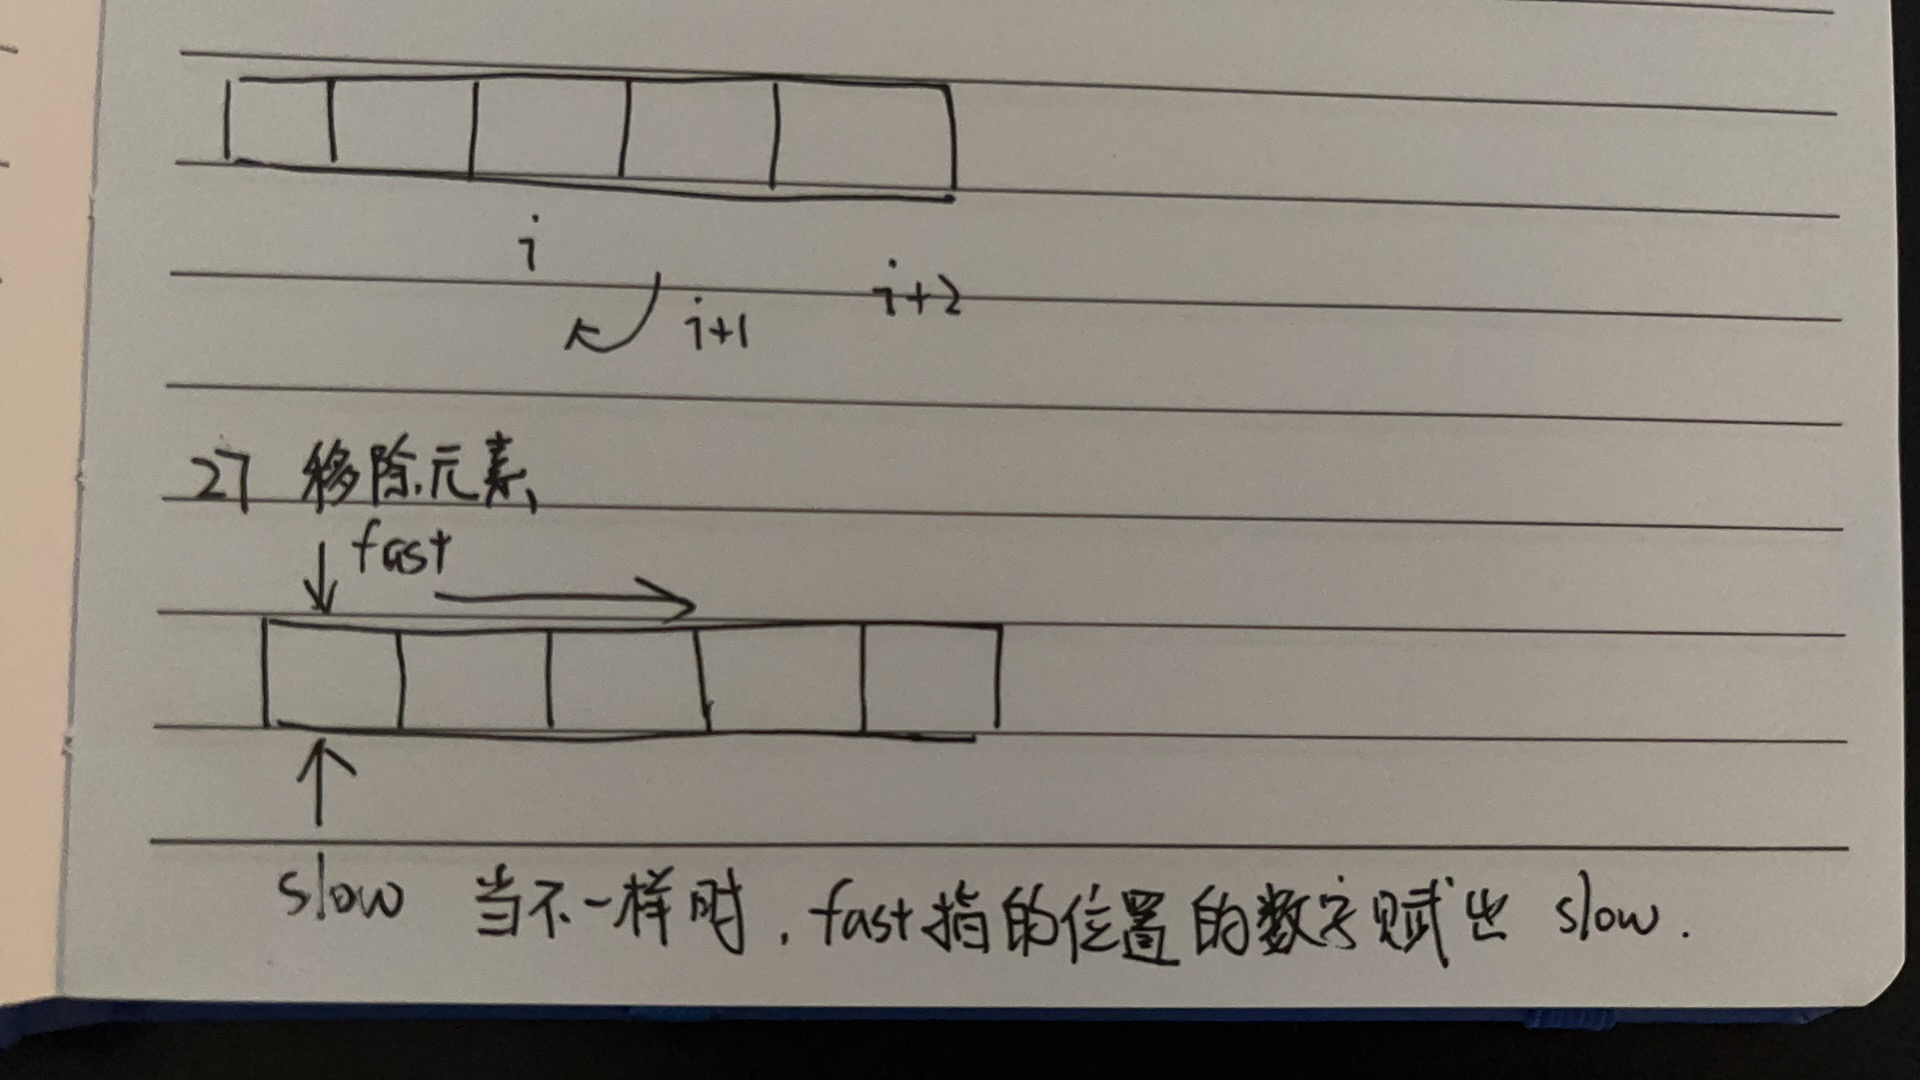 i
i+1
i+2
27 移除元素
fast
slow 当不一样时, fast指的位置的数字赋 slow.